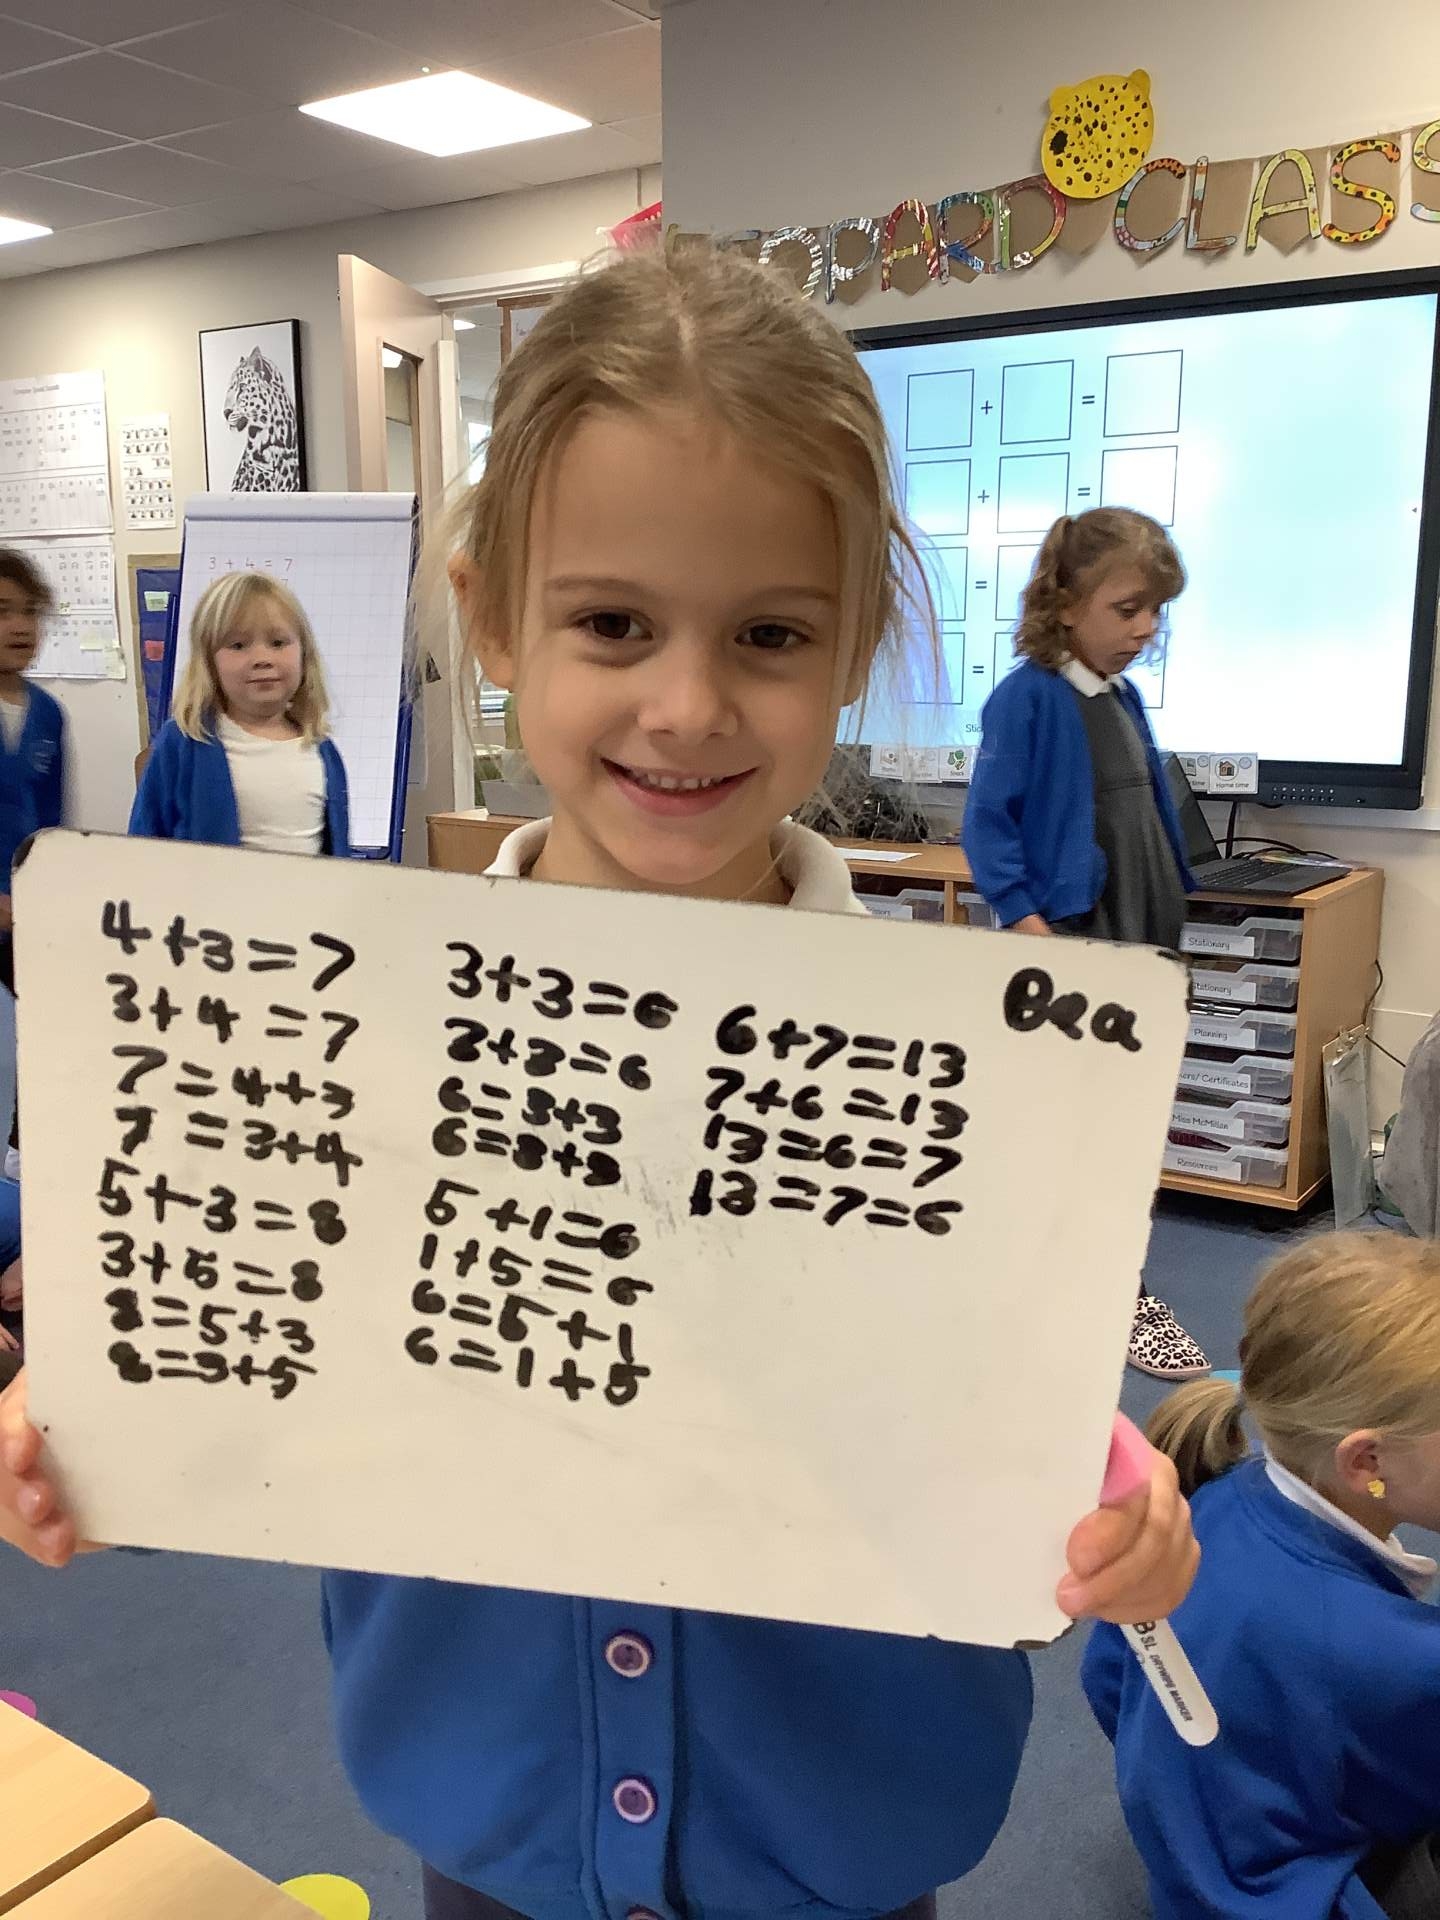 LEOPARD CLASS
3 + 4 = 7
+ =
+ =
=
=
Snack
Home time
4+3=7
3+4=7
7=4+3
7=3+4
5+3=8
3+5=8
8=5+3
8=3+5
3+3=6
3+3=6
6=3+3
6=3+3
5+1=6
1+5=6
6=5+1
6=1+5
6+7=13
7+6=13
13=6=7
13=7=6
Bea
Stationary
Stationary
Planning
Certificates
Miss McMillan
Resources
DRYWIPE MARKER